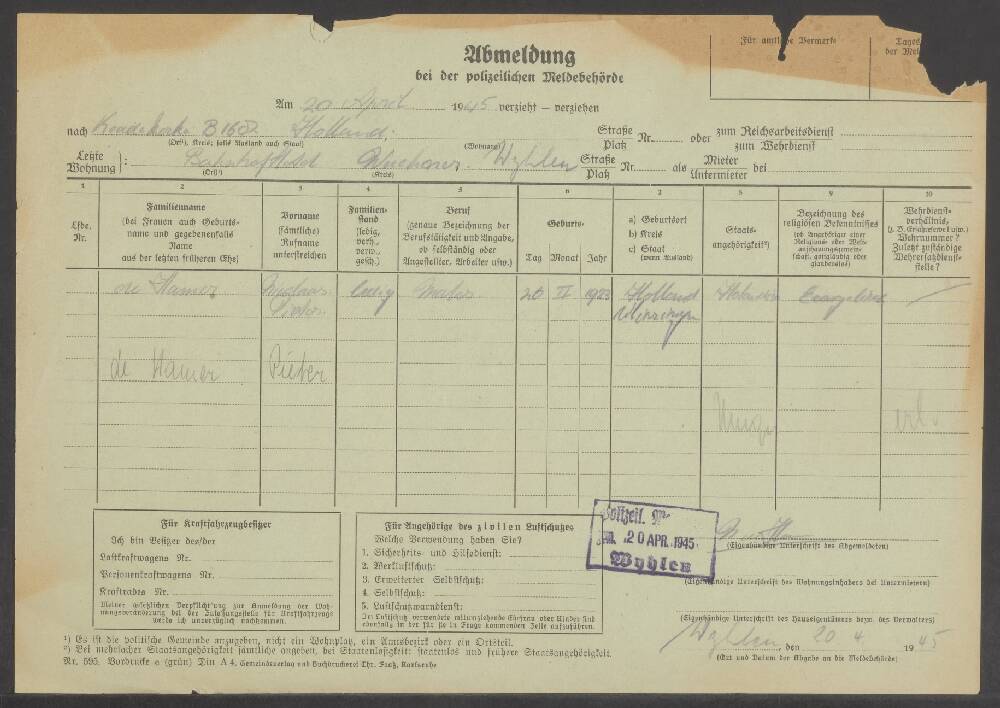 Abmeldung
bei der polizeilichen Meldebehörde
Für amtliche Vermerke
Tages
der Mel
Am 20 April 1945 verzieht — verziehen
nach B 168 Holland.
(Ort), Kreis; falls Ausland auch Staat)
(Wohnung)
Straße
Platz Nr. oder zum Reichsarbeitsdienst
zum Wehrdienst
Letzte
Wohnung: Wyhlen
(Ort¹)
(Kreis)
Straße
Platz Nr. als Mieter
Untermieter bei
1 2 3 4 5 6 7 8 9 10
Lfde.
Nr.
Familienname
(bei Frauen auch Geburts-
name und gegebenenfalls
Name
aus der letzten früheren Ehe)
Vorname
(sämtliche)
Rufname
unterstreichen
Familien-
stand
(ledig,
verh.,
verw.,
gesch.)
Beruf
(genaue Bezeichnung der
Berufstätigkeit und Angabe,
ob selbständig oder
Angestellter, Arbeiter usw.)
Geburts-
Tag Monat Jahr
a) Geburtsort
b) Kreis
c) Staat
(wenn Ausland)
Staats-
angehörigkeit²)
Bezeichnung des
religiösen Bekenntnisses
(ob Angehöriger einer
Religions- oder Welt-
anschauungsgemein-
schaft, gottgläubig oder
glaubenslos)
Wehrdienst-
verhältnis,
(z. B. Ersatzreserve I usw.)
Wehrnummer?
Zuletzt zuständige
Wehrersatzdienst-
stelle?
de Hamer ledig 20 1923 Holland
de Hamer Pieter
Für Kraftfahrzeugbesitzer
Ich bin Besitzer des/der
Lastkraftwagens Nr.
Personenkraftwagens Nr.
Kraftrades Nr.
Meiner gesetzlichen Verpflichtung zur Anmeldung der Woh-
nungsveränderung bei der Zulassungsstelle für Kraftfahrzeuge
werde ich unverzüglich nachkommen.
Für Angehörige des zivilen Luftschutzes
Welche Verwendung haben Sie?
1. Sicherheits- und Hilfsdienst:
2. Werkluftschutz:
3. Erweiterter Selbstschutz:
4. Selbstschutz:
5. Luftschutzwarndienst:
Im Luftschutz verwendete mitumziehende Ehefrau oder Kinder sind
ebenfalls in der für sie in Frage kommenden Zeile aufzuführen.
Polizeil.
20 APR. 1945
Wyhlen
(Eigenhändige Unterschrift des Abgemeldeten)
(Eigenhändige Unterschrift des Wohnungsinhabers bei Untermietern)
(Eigenhändige Unterschrift des Hauseigentümers bezw. des Verwalters)
Wyhlen, den 20 4. 1945
(Ort und Datum der Abgabe an die Meldebehörde)
¹) Es ist die politische Gemeinde anzugeben, nicht ein Wohnplatz, ein Amtsbezirk oder ein Ortsteil.
²) Bei mehrfacher Staatsangehörigkeit sämtliche angeben, bei Staatenlosigkeit: staatenlos und frühere Staatsangehörigkeit.
Nr. 595. Vordrucke a (grün) Din A 4, Gemeindeverlag und Buchdruckerei Chr. Faaß, Karlsruhe